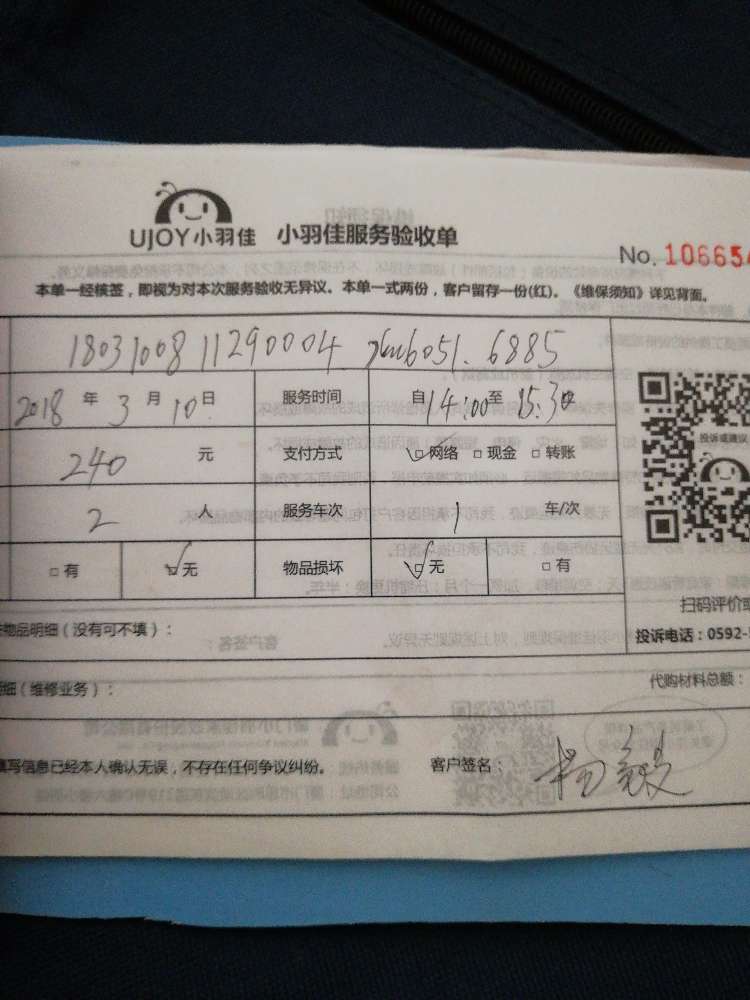 UJOY小羽佳 小羽佳服务验收单
No. 10665
本单一经核签，即视为对本次服务验收无异议。本单一式两份，客户留存一份(红)。《维保须知》详见背面。
18031008 11290004 6051.6885
2018 年 3 月 10 日 服务时间 自14:00至15:30
240 元 支付方式 网络 现金 转账
投诉或建议
2 人 服务车次 1 车/次
有 无 物品损坏 无 有
扫码评价或
物品明细（没有可不填）：
投诉电话：0592-
细（维修业务）：
代购材料总额：
填写信息已经本人确认无误，不存在任何争议纠纷。 客户签名：杨毅